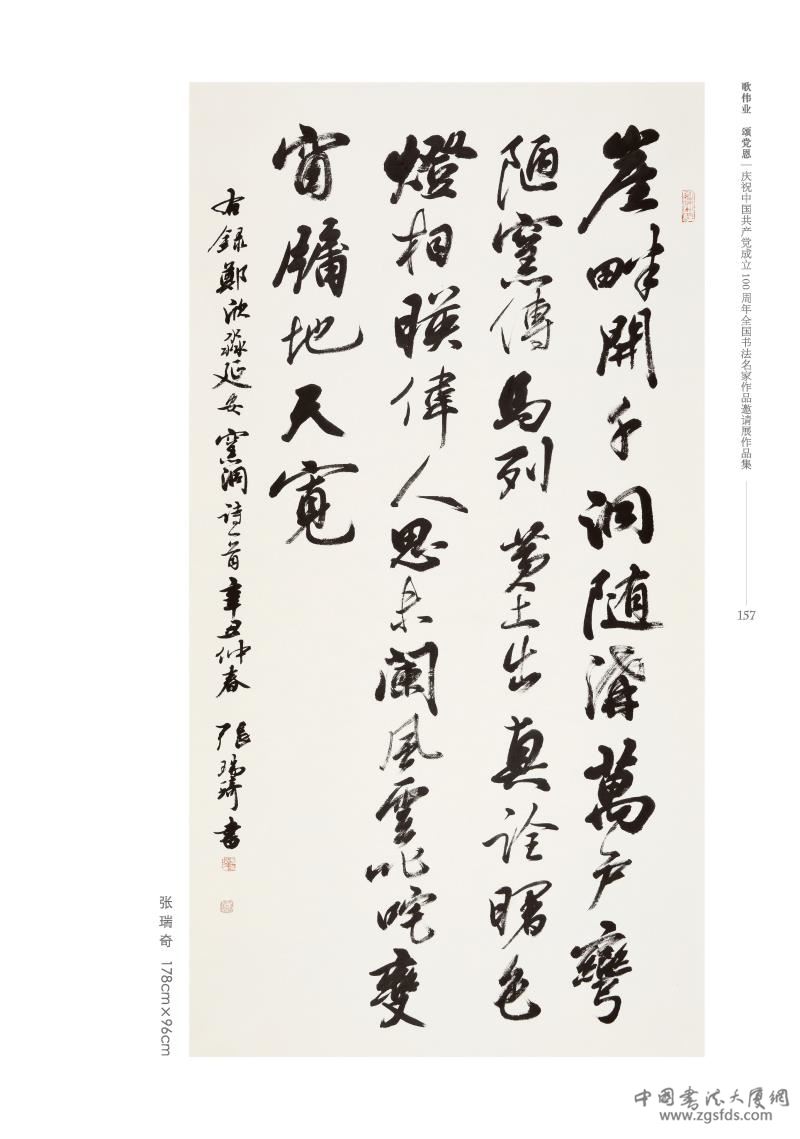 歌伟业 颂党恩 | 庆祝中国共产党成立100周年全国书法名家作品邀请展作品集
157
崖畔開千洞随溝萬户彎
陋窯傳馬列黄土出真詮曙色
燈相暎偉人思未闌風雲叱咤變
窗牖地天寬
右録鄭欣淼延安窯洞詩一首辛丑仲春 張瑞琦書
张瑞奇 178cm×96cm
中国書法大厦網
www.zgsfds.com